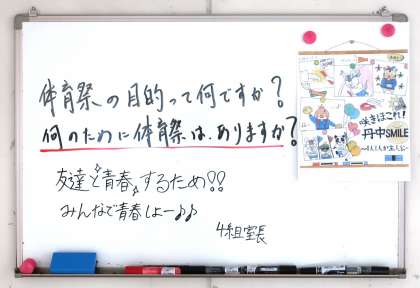 体育祭の目的って何ですか?
何のために体育祭は、ありますか?
友達と青春するため!!
みんなで青春しよー♪♪
4組室長
咲きほこれ!
丹中SMILE